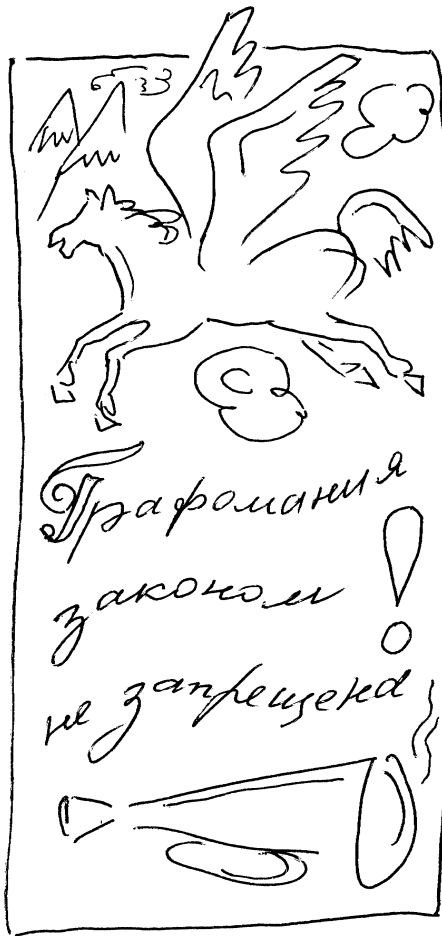 Графомания
законом
не запрещена!